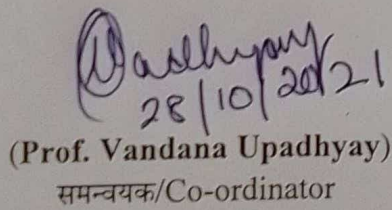 Upadhyay
28/10/2021
(Prof. Vandana Upadhyay)
समन्वयक/Co-ordinator